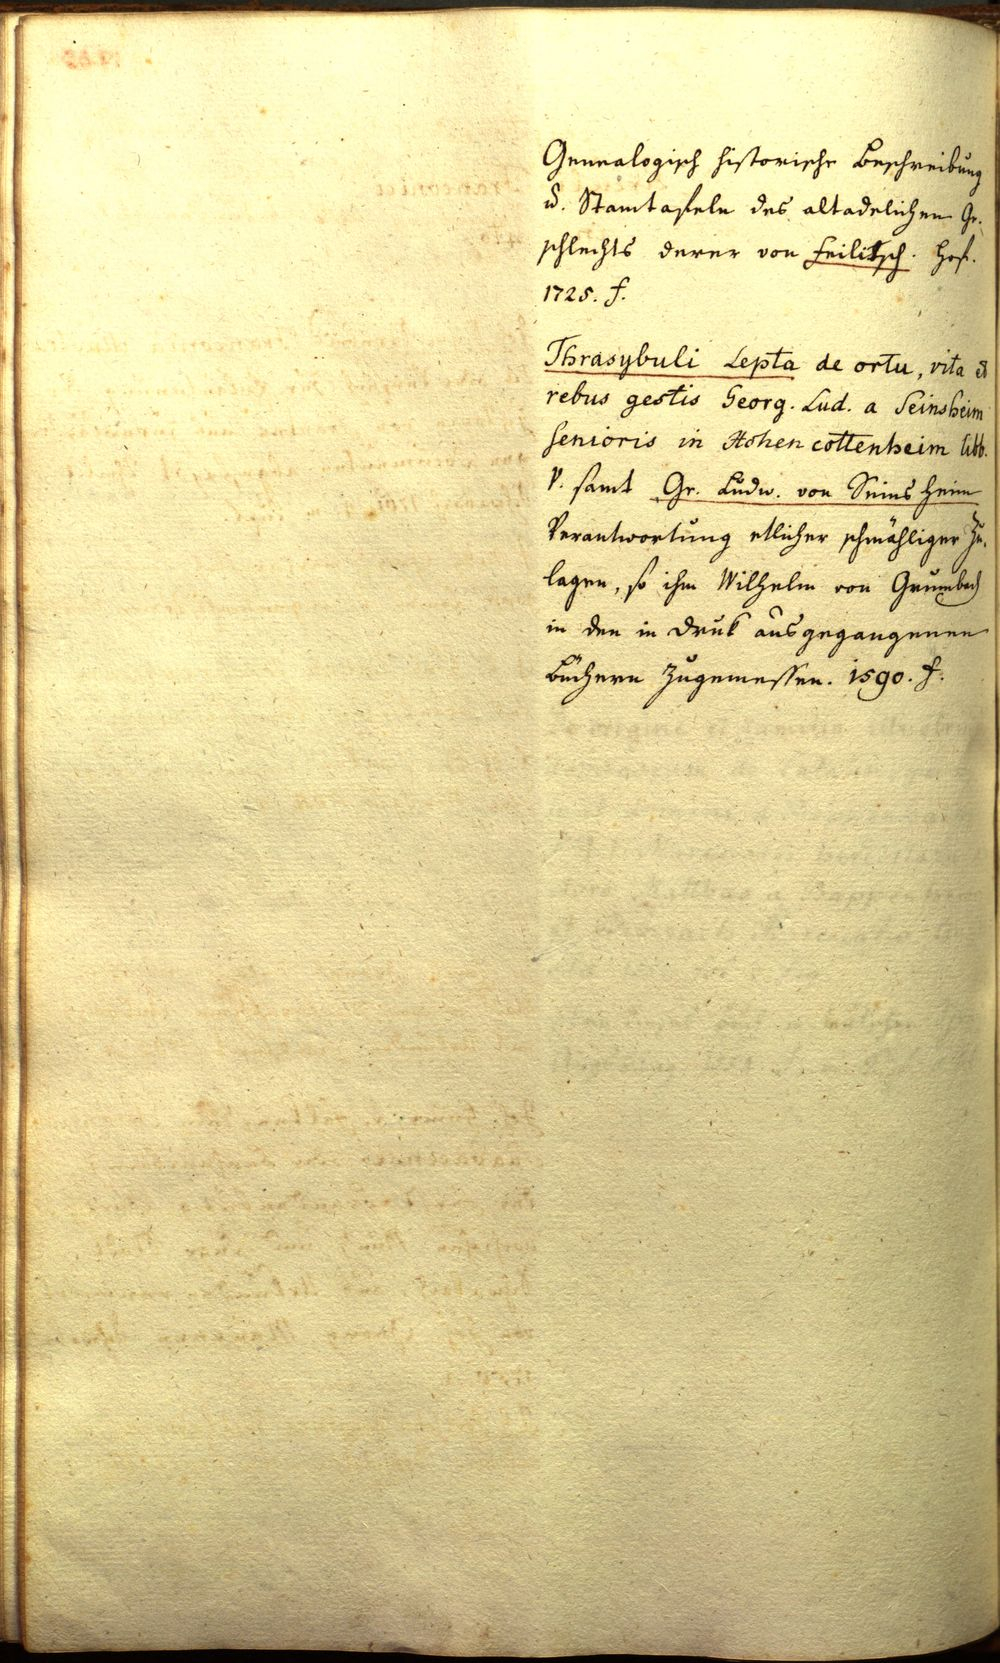 Genealogisch historische Beschreibung
u. Stamtafeln des altadelichen Ge-
schlechts derer von Feilitsch. Hof.
1725. f.
Thrasybuli Lepta de ortu, vita et
rebus gestis Georg. Lud. a Seinsheim
senioris in Hohen cottenheim libb.
V. samt Gr. Ludw. von Seins Heim
Verantwortung etlicher schmähliger Zu-
lagen, so ihm Wilhelm von Grumbach
in den in Druk ausgegangenen
Büchern zugemessen. 1590. f.